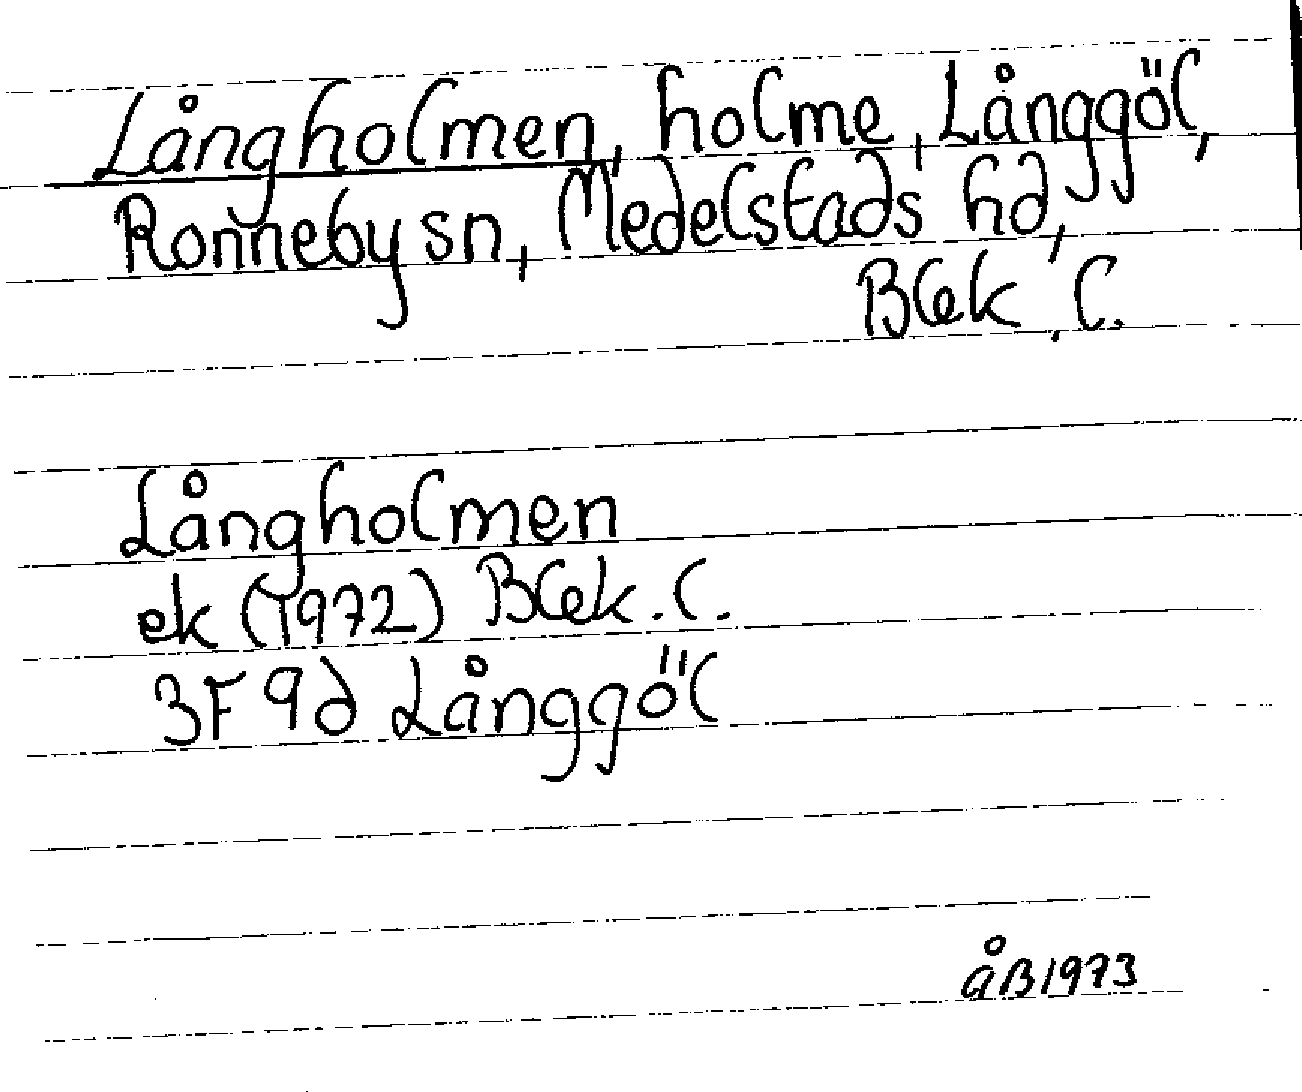 Långholmen, holme, Långgöl,
Ronneby sn, Medelstads hd,
Blek. l.
Långholmen
ek (1972) Blek. l.
3F 9d Långgöl
åB 1973